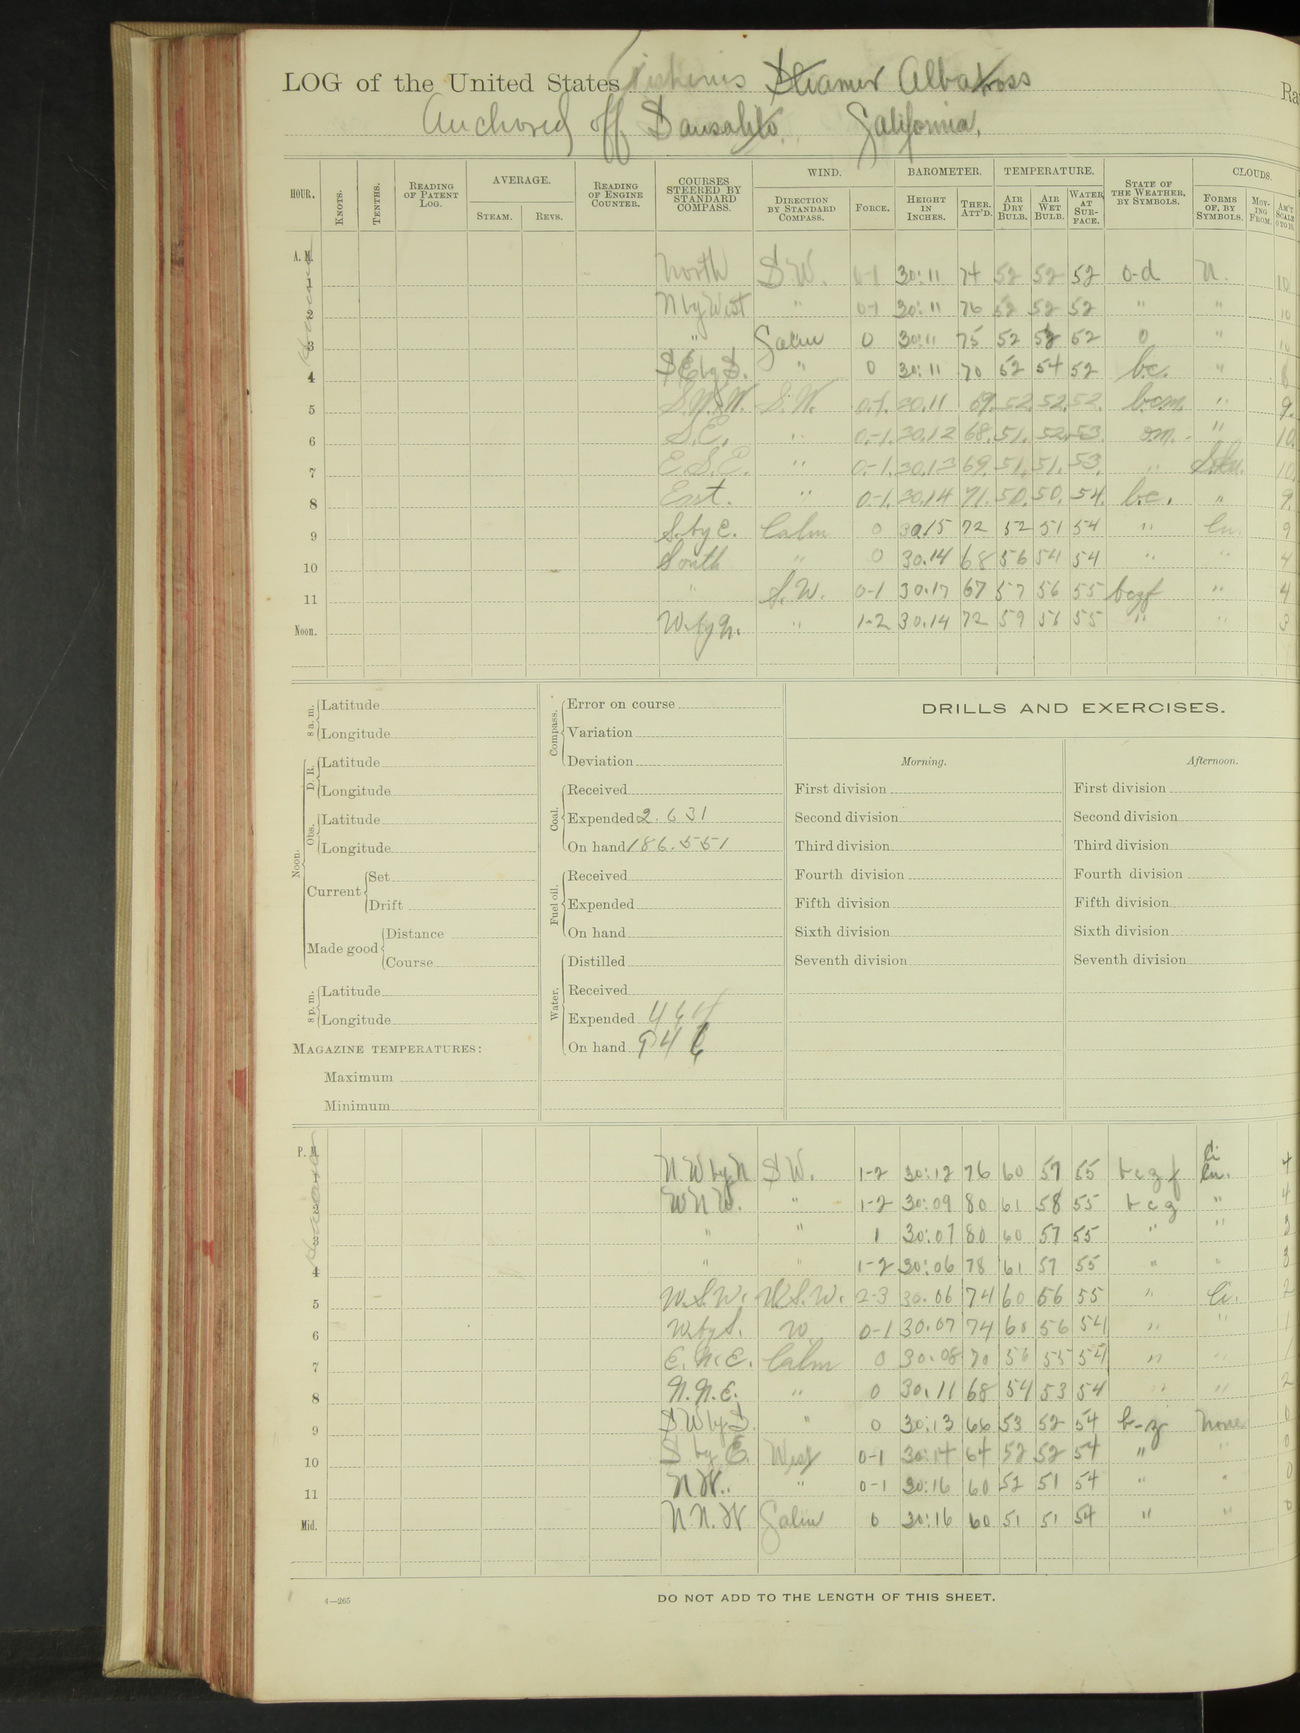 LOG of the United States Fisheries Steamer Albatross Ra
Anchored off Sausalito, California,
HOUR. KNOTS. TENTHS. READING OF PATENT LOG. AVERAGE. STEAM. REVS. READING OF ENGINE COUNTER. COURSES STEERED BY STANDARD COMPASS. WIND. DIRECTION BY STANDARD COMPASS. FORCE. BAROMETER. HEIGHT IN INCHES. THER. ATT'D. TEMPERATURE. AIR DRY BULB. AIR WET BULB. WATER AT SURFACE. STATE OF THE WEATHER, BY SYMBOLS. CLOUDS. FORMS OF, BY SYMBOLS. MOVING FROM. AM'T SCALE 0 TO 10.
A. M.
1 North S W. 0-1 30:11 74 52 52 52 o-d N. 10
2 N by West " 0-1 30:11 76 52 52 52 " " 10
3 " Calm 0 30:11 75 52 52 52 o " 10
4 S E by S. " 0 30:11 70 52 54 52 b.c. " 8
5 S.W. 0-1. 30.11 69. 52. 52. 52. bcm. " 9.
6 S.E. " 0-1. 30.12 68. 51. 52. 53. om. " 10.
7 E.S.E. " 0-1. 30.13 69. 51. 51. 53. " 10.
8 East. " 0-1. 30.14 71. 50. 50. 54. b.c. " 9.
9 S. by E. Calm 0 30.15 72 52 51 54 " Cu. 9
10 South " 0 30.14 68 56 54 54 " " 4
11 " S.W. 0-1 30.17 67 57 56 55 bczf " 4
Noon. W. by N. " 1-2 30.14 72 59 56 55 " " 3
8 a. m. Latitude
Longitude
Noon. D. R. Latitude
Longitude
Obs. Latitude
Longitude
Current Set
Drift
Made good Distance
Course
8 p. m. Latitude
Longitude
MAGAZINE TEMPERATURES:
Maximum
Minimum
Compass. Error on course
Variation
Deviation
Coal. Received
Expended 2.631
On hand 186.551
Fuel oil. Received
Expended
On hand
Water. Distilled
Received
Expended
On hand
DRILLS AND EXERCISES.
Morning. Afternoon.
First division First division
Second division Second division
Third division Third division
Fourth division Fourth division
Fifth division Fifth division
Sixth division Sixth division
Seventh division Seventh division
P. M.
N.W by N S W. 1-2 30:12 76 60 57 55 b c z f Ci Cu. 4
2 W N W. " 1-2 30:09 80 61 58 55 b c z " 4
3 " " 1 30:07 80 60 57 55 " " 3
4 " " 1-2 30:06 78 61 57 55 " " 3
5 W.S.W. W.S.W. 2-3 30.06 74 60 56 55 " Ci. 2
6 W. by S. W 0-1 30.07 74 60 56 54 " " 1
7 E.N.E. Calm 0 30.08 70 56 55 54 " " 1
8 N.N.E. " 0 30.11 68 54 53 54 " " 2
9 S W by S. " 0 30:13 66 53 52 54 b-z None 0
10 S by E. West 0-1 30:14 64 52 52 54 " " 0
11 N W. " 0-1 30:16 60 52 51 54 " " 0
Mid. N N. W Calm 0 30:16 60 51 51 54 " " 0
4—265 DO NOT ADD TO THE LENGTH OF THIS SHEET.